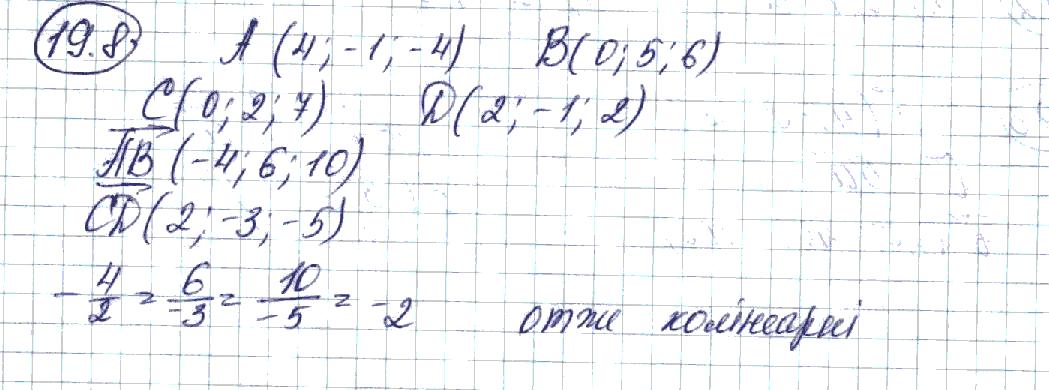 19.8 A (4; -1; -4) B(0; 5; 6)
C(0; 2; 7) D(2; -1; 2)
AB (-4; 6; 10)
CD(2; -3; -5)
-4/2 = 6/-3 = 10/-5 = -2 отже колінеарні